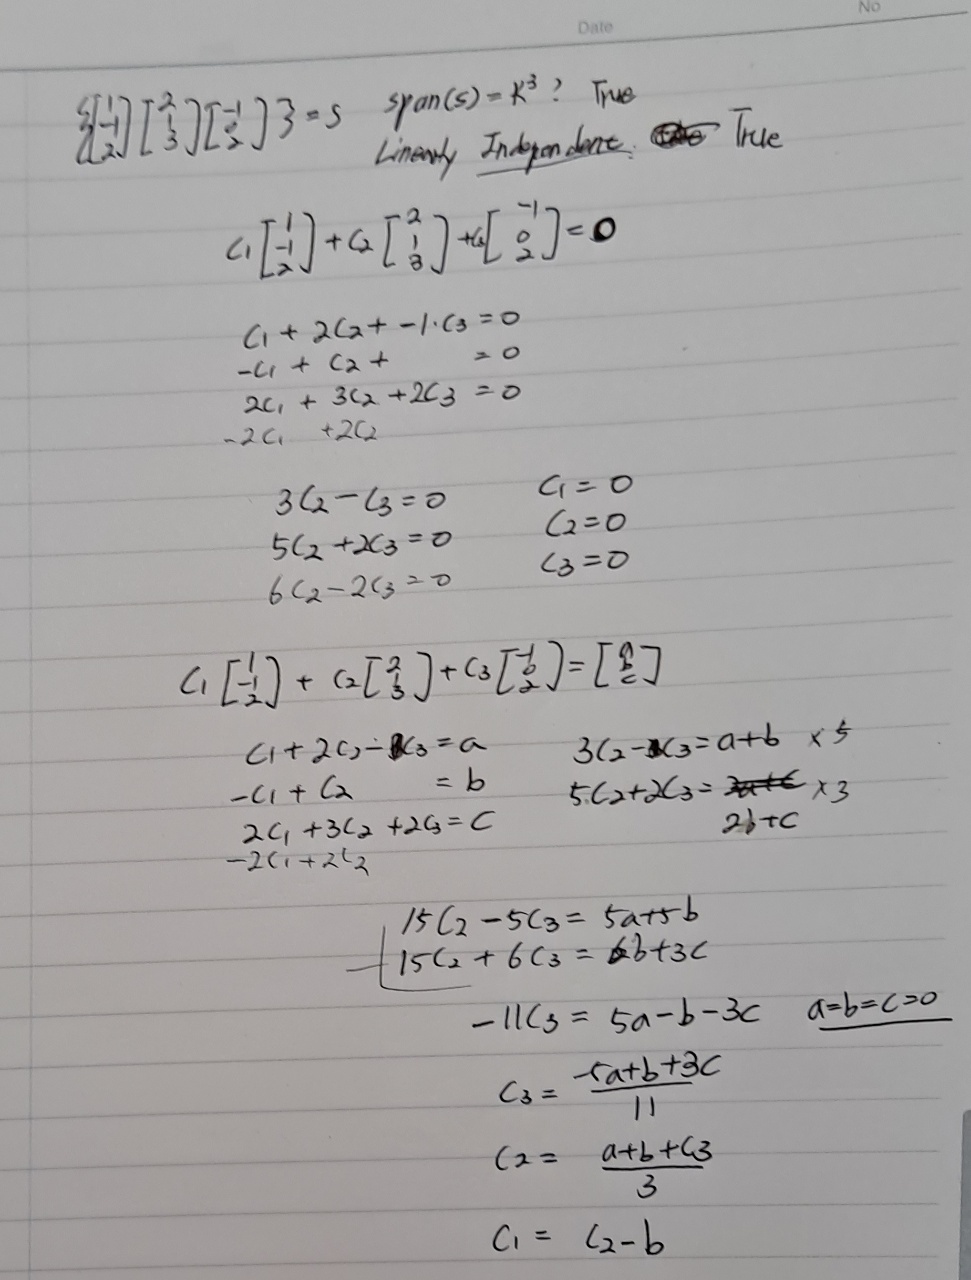 Date
No
{[1 -1 2] [2 1 3] [-1 0 2]} = S span(S) = K³? True
Linearly Independent. True
C₁ [1 -1 2] + C₂ [2 1 3] + C₃ [-1 0 2] = 0
C₁ + 2C₂ + -1·C₃ = 0
-C₁ + C₂ + = 0
2C₁ + 3C₂ + 2C₃ = 0
-2C₁ + 2C₂
3C₂ - C₃ = 0 C₁ = 0
5C₂ + 2C₃ = 0 C₂ = 0
6C₂ - 2C₃ = 0 C₃ = 0
C₁ [1 -1 2] + C₂ [2 1 3] + C₃ [-1 0 2] = [a b c]
C₁ + 2C₂ - C₃ = a 3C₂ - C₃ = a+b × 5
-C₁ + C₂ = b 5C₂ + 2C₃ = × 3
2C₁ + 3C₂ + 2C₃ = C 2b+c
-2C₁ + 2C₂
15C₂ - 5C₃ = 5a+5b
15C₂ + 6C₃ = 6b+3c
-11C₃ = 5a-b-3c a=b=c=0
C₃ = -5a+b+3c / 11
C₂ = a+b+C₃ / 3
C₁ = C₂-b